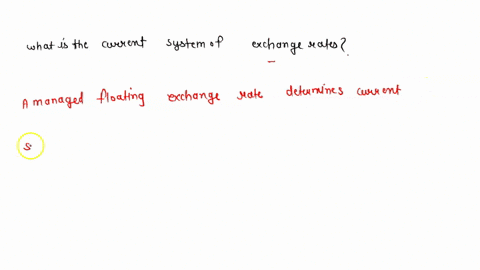 what is the current system of exchange rates?
A managed floating exchange rate determines current
s